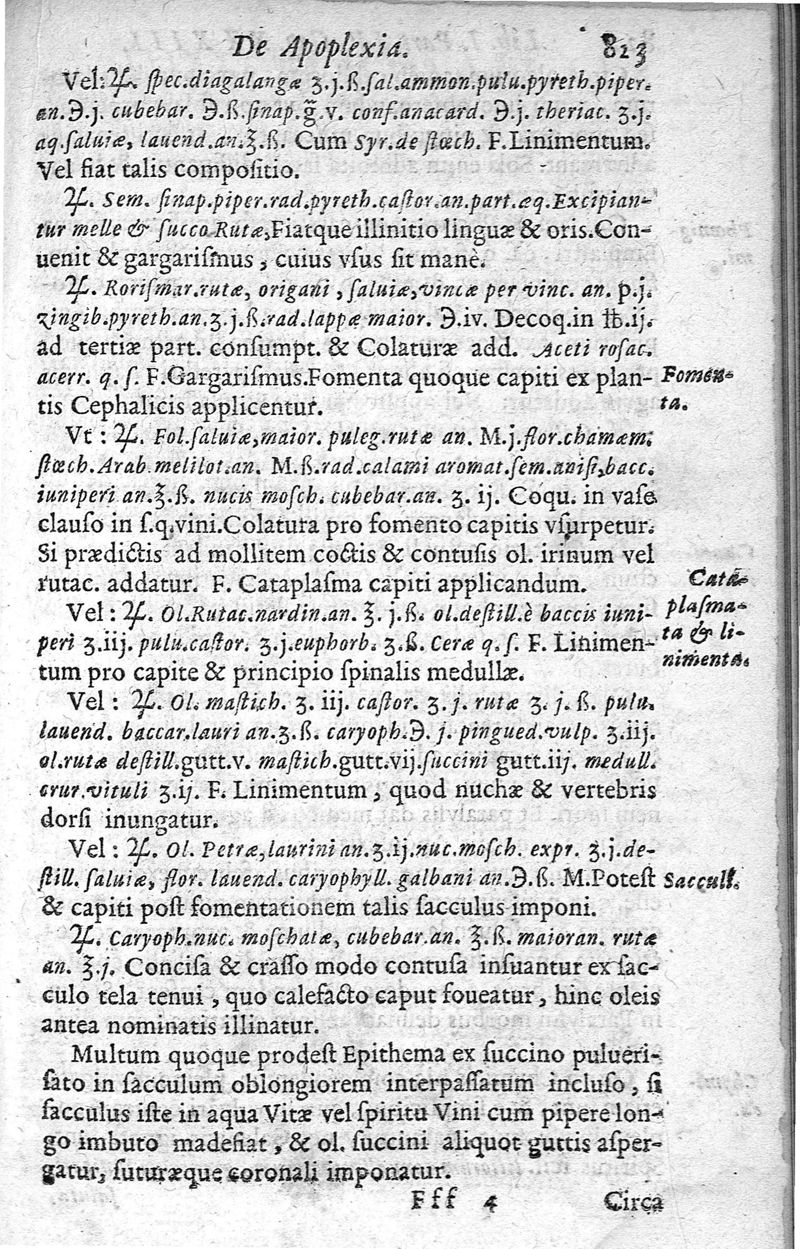 De Apoplexia. 823
Vel: ℞. ſpec.diagalangæ ʒ.j.ß.ſal.ammon.pulu.pyreth.piper.
an.℈.j. cubebar. ℈.ß.ſinap.g̃.v. conf.anacard. ℈.j. theriac. ʒ.j.
aq.ſaluiæ, lauend.an.℥.ß. Cum Syr.de ſtœch. F.Linimentum.
Vel fiat talis compoſitio.
℞. Sem. ſinap.piper.rad.pyreth.caſtor.an.part.æq.Excipian-
tur melle & ſucco Rutæ,Fiatque illinitio linguæ & oris.Con-
uenit & gargariſmus, cuius vſus ſit manè.
℞. Roriſmar.rutæ, origani, ſaluiæ,vincæ per vinc. an. p.j.
zingib.pyreth.an.ʒ.j.ß.rad.lappæ maior. ℈.iv. Decoq.in ℔.ij.
ad tertiæ part. conſumpt. & Colaturæ add. Aceti roſac.
acerr. q. ſ. F.Gargariſmus.Fomenta quoque capiti ex plan-
Fomen-
tis Cephalicis applicentur.
ta.
Vt : ℞. Fol.ſaluiæ,maior. puleg.rutæ an. M.j.flor.chamæm.
ſtœch.Arab.melilot.an. M.ß.rad.calami aromat.ſem.aniſi,bacc.
iuniperi an.℥.ß. nucis moſch. cubebar.an. ʒ. ij. Coqu. in vaſe
clauſo in ſ.q.vini.Colatura pro fomento capitis vſurpetur.
Si prædictis ad mollitem coctis & contuſis ol. irinum vel
rutac. addatur. F. Cataplaſma capiti applicandum.
Cata-
Vel : ℞. Ol.Rutac.nardin.an. ℥. j.ß. ol.deſtill.è baccis iuni-
plaſma-
peri ʒ.iij. pulu.caſtor. ʒ.j.euphorb. ʒ.ß. Ceræ q. ſ. F. Linimen-
ta & li-
tum pro capite & principio ſpinalis medullæ.
nimenta.
Vel : ℞. Ol. maſtich. ʒ. iij. caſtor. ʒ. j. rutæ ʒ. j. ß. pulu.
lauend. baccar.lauri an.ʒ.ß. caryoph.℈. j. pingued.vulp. ʒ.iij.
ol.rutæ deſtill.gutt.v. maſtich.gutt.vij.ſuccini gutt.iij. medull.
crur.vituli ʒ.ij. F. Linimentum, quod nuchæ & vertebris
dorſi inungatur.
Vel : ℞. Ol. Petræ,laurini an.ʒ.ij.nuc.moſch. expr. ʒ.j.de-
ſtill. ſaluiæ, flor. lauend. caryophyll. galbani an.℈.ß. M.Poteſt
Sacculi.
& capiti poſt fomentationem talis ſacculus imponi.
℞. Caryoph.nuc. moſchatæ, cubebar.an. ℥.ß. maioran. rutæ
an. ℥.j. Conciſa & craſſo modo contuſa inſuantur ex ſac-
culo tela tenui, quo calefacto caput foueatur, hinc oleis
antea nominatis illinatur.
Multum quoque prodeſt Epithema ex ſuccino pulueri-
ſato in ſacculum oblongiorem interpaſſatum incluſo, ſi
ſacculus iſte in aqua Vitæ vel ſpiritu Vini cum pipere lon-
go imbuto madefiat, & ol. ſuccini aliquot guttis aſper-
gatur, ſuturæque coronali imponatur.
Fff 4 Circa